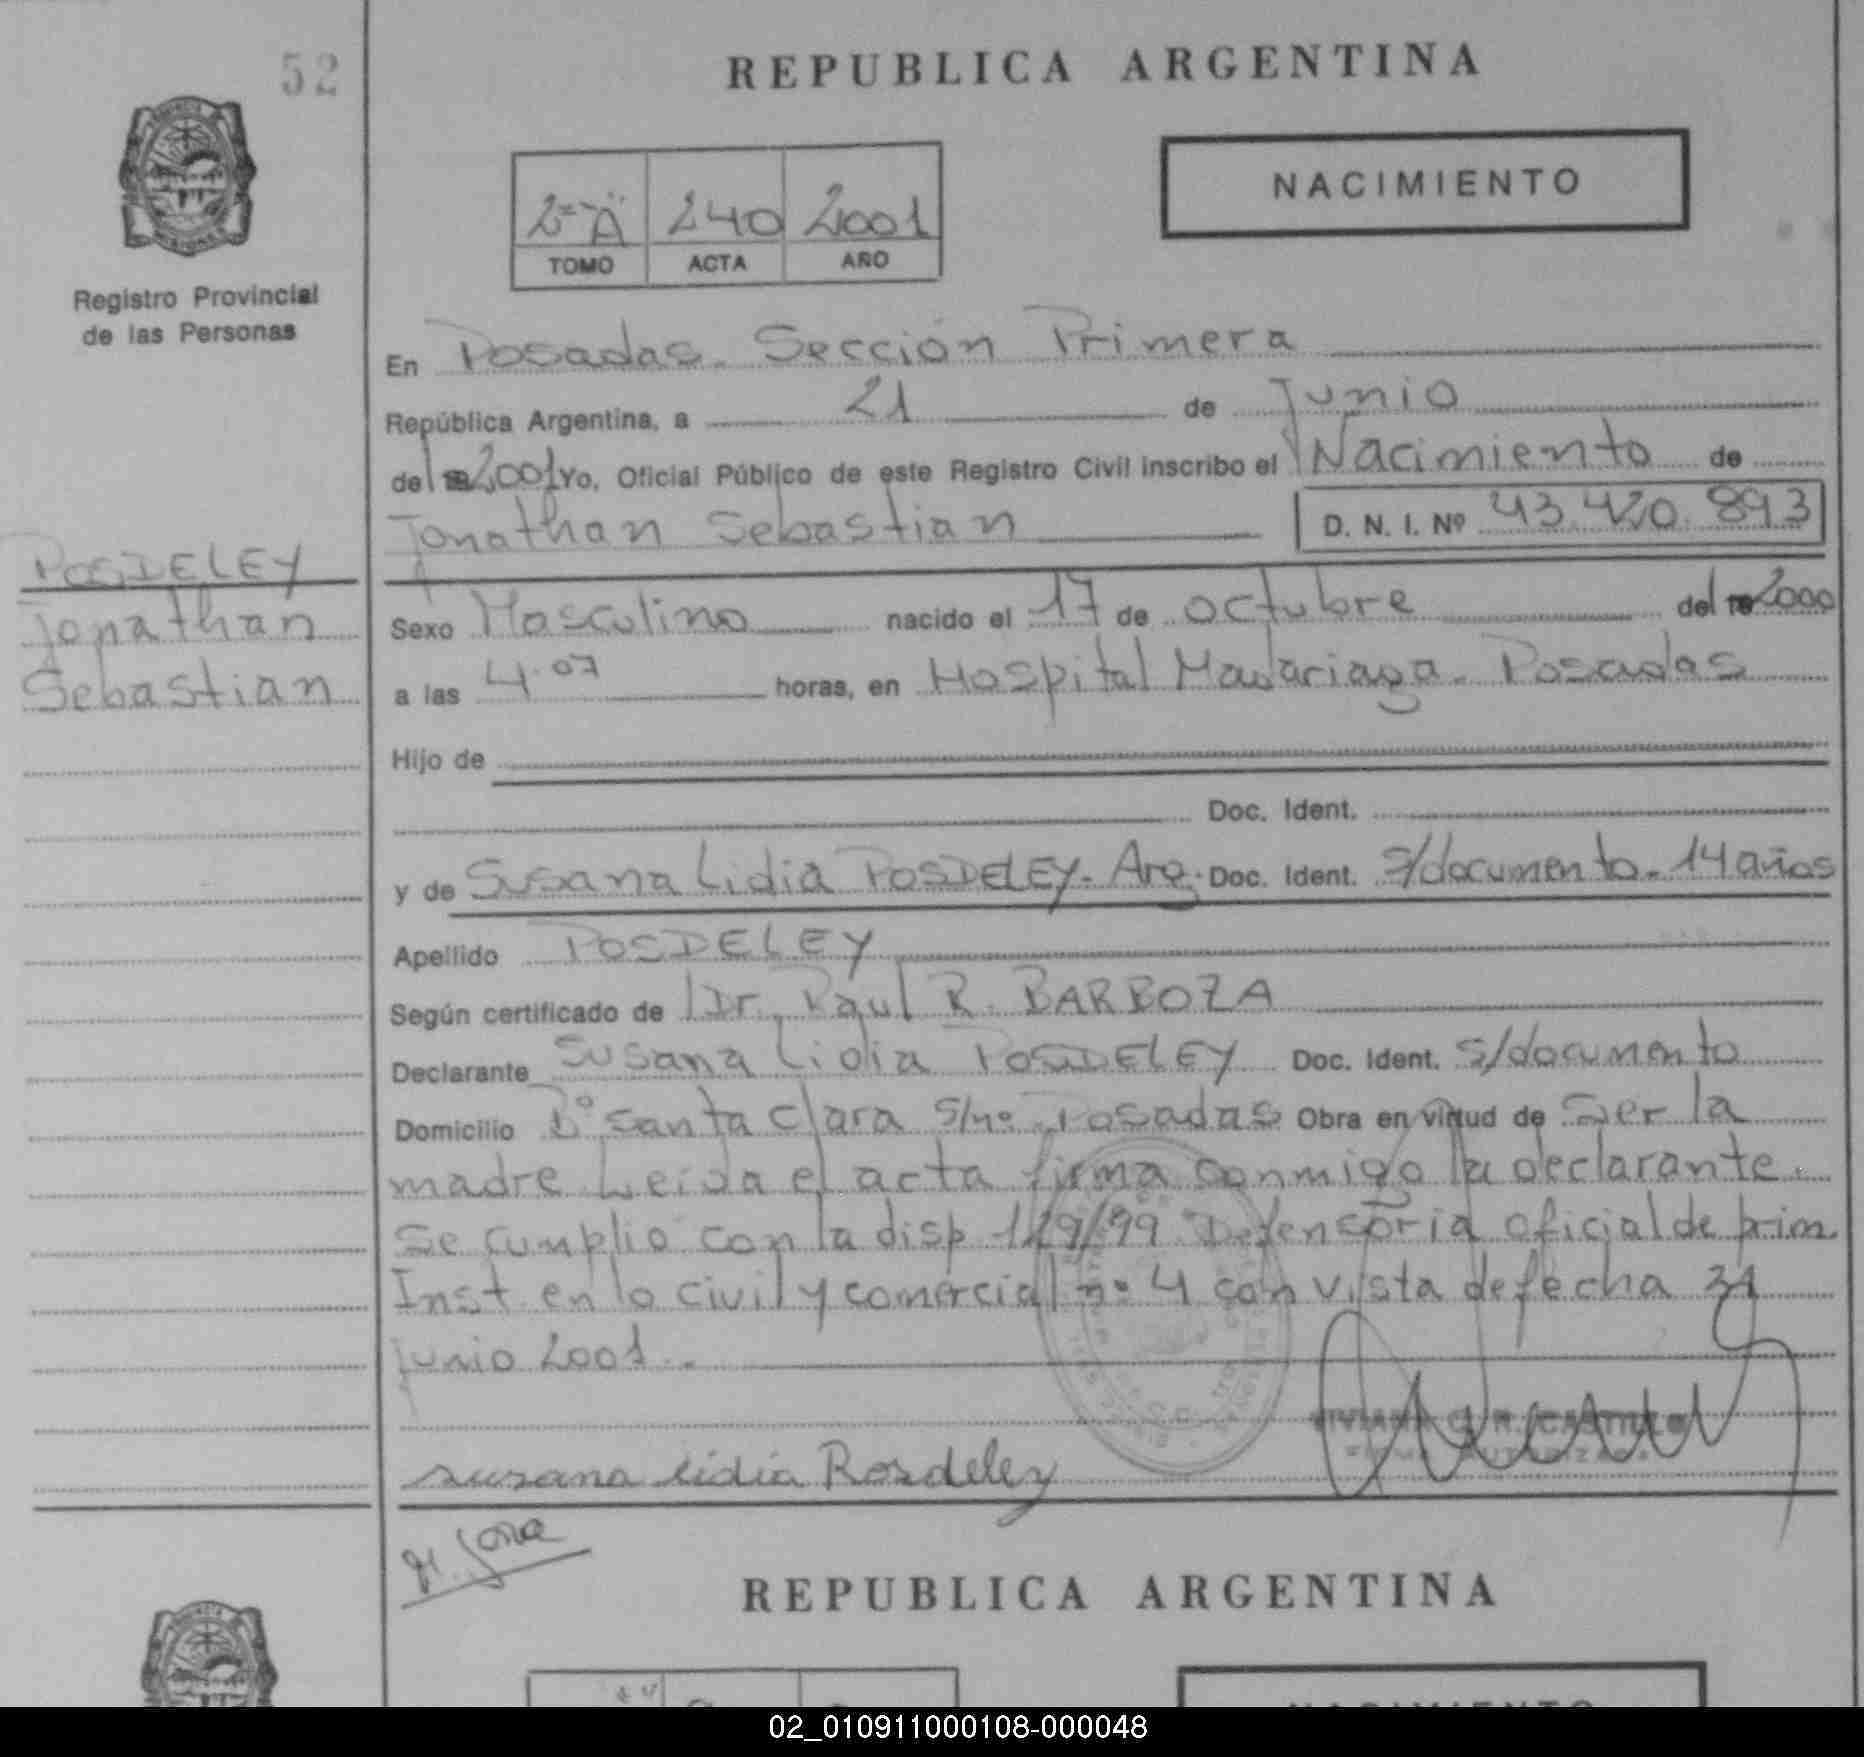 52
REPUBLICA ARGENTINA
NACIMIENTO
2º "A" 240 2001
TOMO ACTA AÑO
Registro Provincial
de las Personas
En Posadas. Sección Primera
República Argentina, a 21 de Junio
del 2001 Yo, Oficial Público de este Registro Civil inscribo el Nacimiento de
Jonathan Sebastian D. N. I. Nº 43.420.893
POSDELEY
Jonathan
Sebastian
Sexo Masculino nacido el 17 de octubre del 2000
a las 4.07 horas, en Hospital Madariaga. Posadas
Hijo de
Doc. Ident.
y de Susana Lidia POSDELEY. Arg. Doc. Ident. s/documento. 14 años
Apellido POSDELEY
Según certificado de Dr. Raul R. BARBOZA
Declarante Susana Lidia POSDELEY Doc. Ident. s/documento
Domicilio Bº Santa Clara s/nº Posadas Obra en virtud de Ser la
madre Leida el acta firma conmigo la declarante.
Se cumplio con la disp 129/99 Defensoria oficial de prim.
Inst. en lo civil y comercial nº 4 con vista de fecha
junio 2001.-
VIVIANA R. CASTILLO
FIRMA AUTORIZADA
susana lidia Rosdeley
REPUBLICA ARGENTINA
NACIMIENTO
02_010911000108-000048